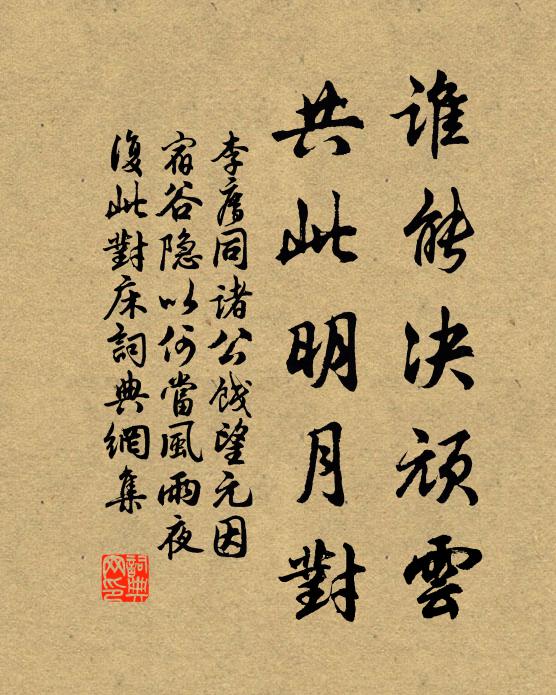 谁能决顽雲
共此明月對
李廌同諸公餞望元因
宿谷隐以何當風雨夜
復此對床詞典網集
詞典网印